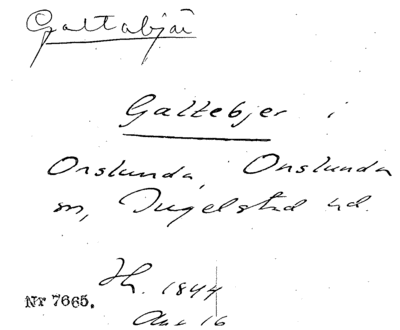 Galtabjär
Galtebjer i
Onslunda, Onslunda
sn, Ingelstad hd.
Jh. 1844
Nr 7665.
16